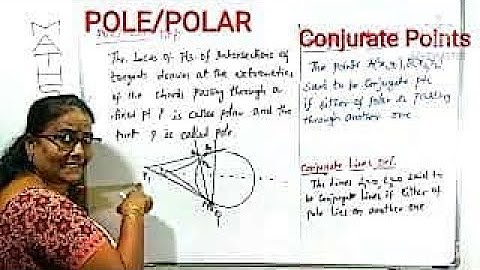 POLE/POLAR
Conjurate Points
The Locus of Pts. of Intersections of
tangents drawn at the extremities
of the Chords passing through a
fixed pt P is called polar and the
point P is called pole
The points
said to be Conjugate pts
if either of polar is passing
through another one
Conjugate Lines
The lines L₁=0, L₂=0 said to
be Conjugate lines if either of
pole lies on another one
MATHS
P